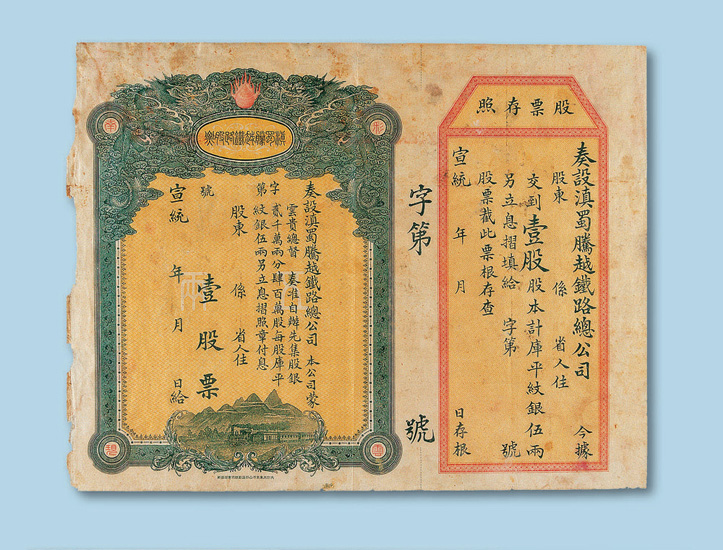 股票存照
奏設滇蜀騰越鐵路總公司 今據
股東 係 省人住
交到壹股股本計庫平紋銀伍兩
另立息摺填給 字第 號
股票截此票根存查
宣統 年 月 日存根
字第 號
滇蜀騰越鐵路股票
奏設滇蜀騰越鐵路總公司 本公司蒙
雲貴總督 奏准自辦先集股銀
貳千萬兩分肆百萬股每股庫平
紋銀伍兩另立息摺照章付息
字第 號
股東 係 省人住
壹股票
宣統 年 月 日給